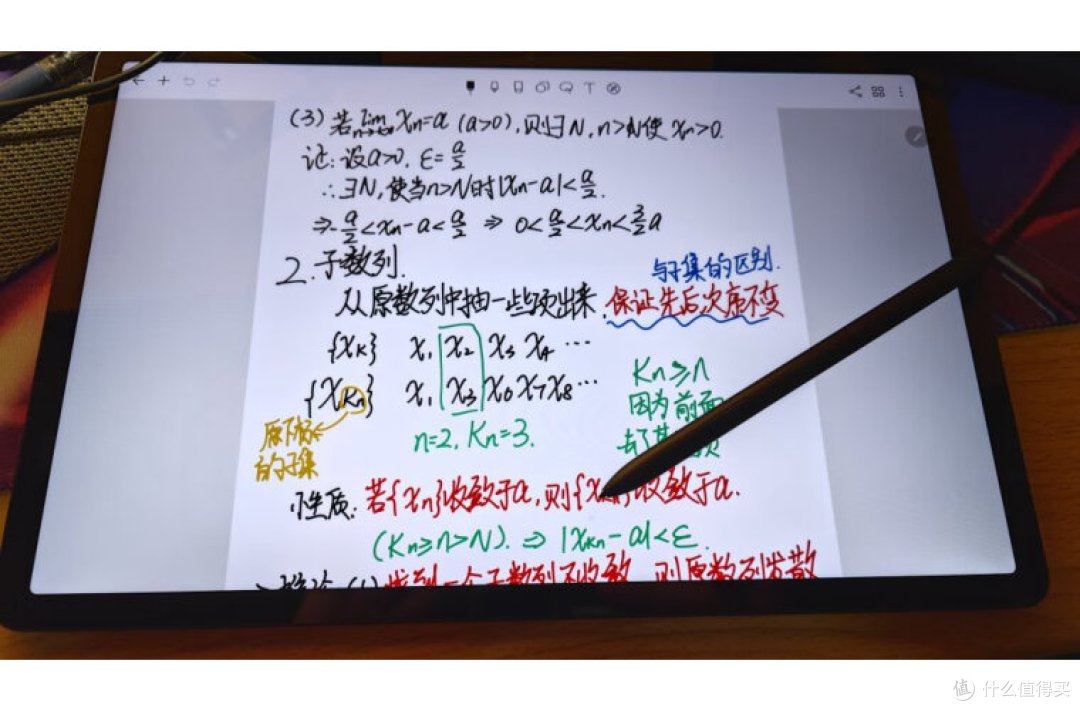 (3) 若 lim n→∞ Xn=a (a>0), 则∃N, n>N使 Xn>0.
证: 设a>0, ε=a/2
∴∃N, 使当n>N时|Xn-a|<a/2.
⇒-a/2<Xn-a<a/2 ⇒ 0<a/2<Xn<3/2a
2. 子数列.
与子集的区别.
从原数列中抽一些项出来, 保证先后次序不变
{XK} X1 X2 X3 X4 …
{XKn} X1 X3 X6 X7 X8 …
原下标
的子集
n=2, Kn=3.
Kn≥n
因为前面
去了
1)性质: 若{Xn}收敛于a, 则{X 收敛于a.
(Kn≥n>N). ⇒ |XKn-a|<ε.
(1) 找到一个子数列不收敛, 则原数列发散
值 什么值得买